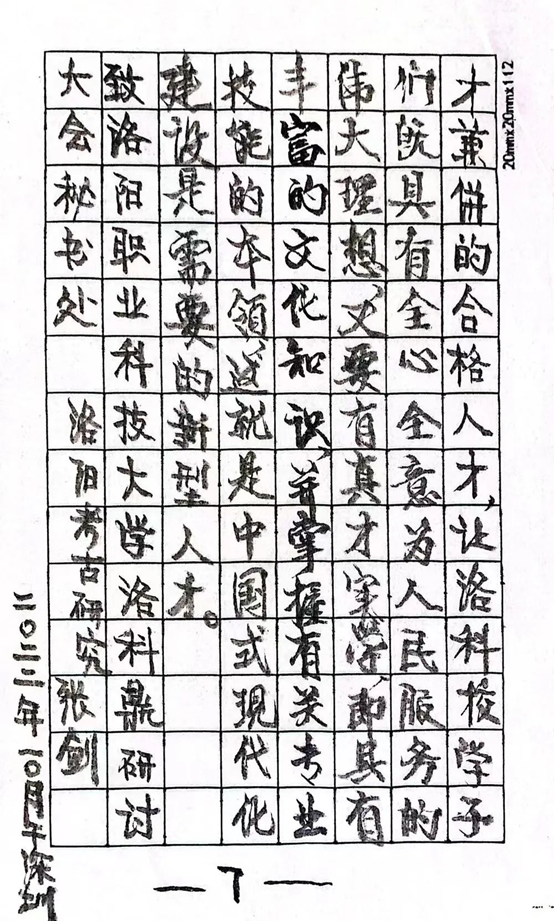 20mm×20mm×112
才兼併的合格人才，让洛科校学子
们既具有全心全意为人民服务的
伟大理想，又要有真才实学，即具有
丰富的文化知识，并掌握有关专业
技能的本领，这就是中国式现代化
建设是需要的新型人才。
致洛阳职业科技大学洛科鼎研讨
大会秘书处 洛阳考古研究张剑
二〇二三年一〇月于深圳
—7—